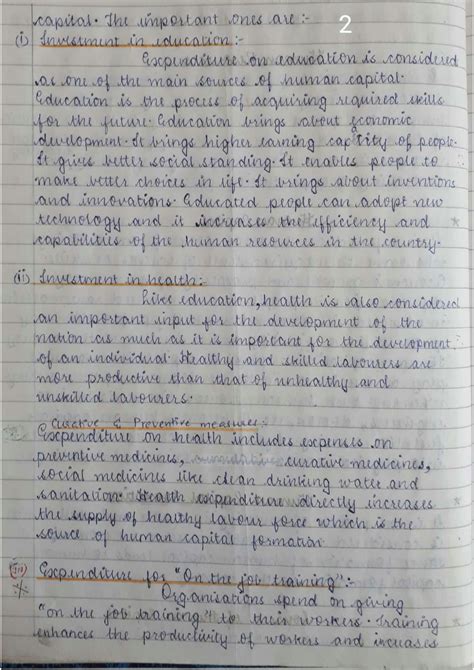 capital. The important ones are :-
2
(i) Investment in education :-
Expenditure on education is considered
as one of the main sources of human capital.
Education is the process of acquiring required skills
for the future. Education brings about economic
development. It brings higher earning capacity of people.
It gives better social standing. It enables people to
make better choices in life. It brings about inventions
and innovations. Educated people can adopt new
technology and it increases the efficiency and
capabilities of the human resources in the country.
(ii) Investment in health :-
Like education, health is also considered
an important input for the development of the
nation as much as it is important for the development
of an individual. Healthy and skilled labourers are
more productive than that of unhealthy and
unskilled labourers.
Curative & Preventive measures :-
Expenditure on health includes expenses on
preventive medicines, curative medicines,
social medicines like clean drinking water and
sanitation. Health expenditure directly increases
the supply of healthy labour force which is the
source of human capital formation.
(iii) Expenditure for "On the job training" :-
Organisations spend on giving
"on the job training" to their workers. Training
enhances the productivity of workers and increases